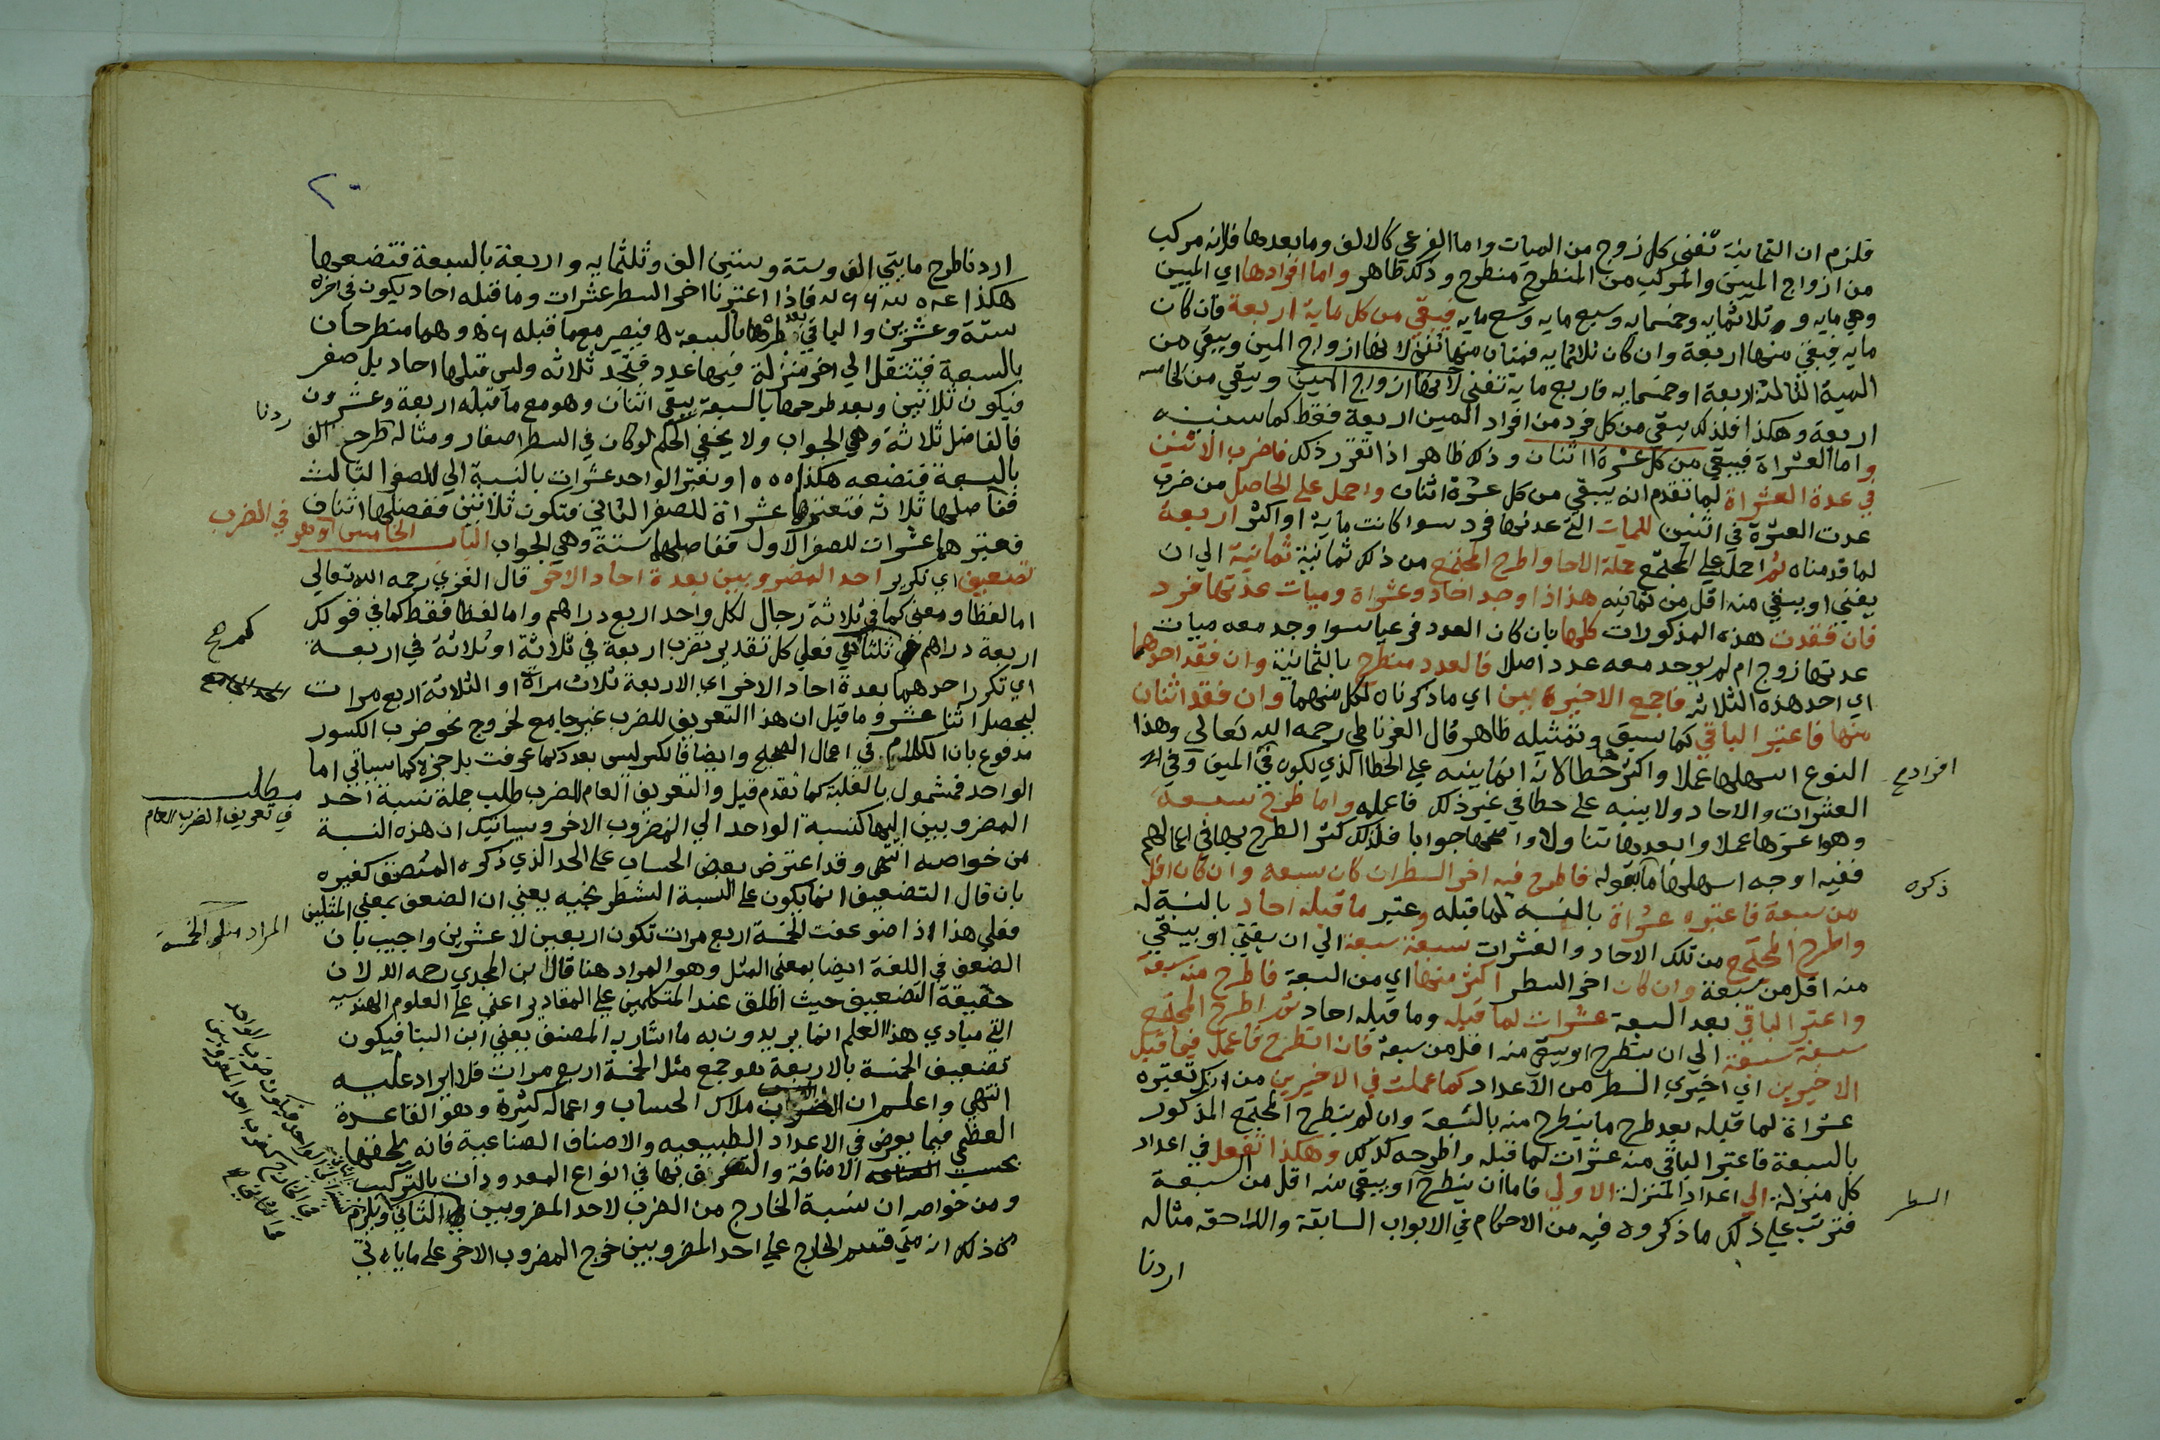 فلزم ان الثمانية تفني كل زوج من الميات واما الفرعي كالالف وما بعدها فلانه مركب
من ازواج الميين والمركب من المنطرح منطرح وذلك ظاهر واما افرادها اي الميين
وهي مايه وثلاثمايه وخمسمايه وسبع مايه وتسع مايه فيبقي من كل ماية اربعة فان كان
مايه فيبقي منها اربعة وان كان ثلاثمايه فمئتان منها تفني لانها ازواج المين ويبقي من
المية الثالثة اربعة او خمسمايه فاربع ماية تفني لانها ازواج الميين ويبقي من الخامسه
اربعة وهكذا فلذلك يبقي من كل فرد من افراد المين اربعة فقط كما سنبينه
واما العشراة فيبقي من كل عشرة اثنان وذلك ظاهر اذا تقرر ذلك فاضرب الاثنين
في عدة العشراة لما تقدم انه يبقي من كل عشرة اثنان واحمل علي الحاصل من ضرب
عدت العشرة في اثنين للميات التي عدتها فرد سوا كانت ماية او اكثر اربعة
لما قدمناه ثم احمل علي المجتمع جملة الاحاد واطرح المجتمع من ذلك ثمانية ثمانية الي ان
يفني او يبقي منه اقل من ثمانيه هذا اذا وجد احاد وعشراة وميات عدتها فرد
فان فقدت هذه المذكورات كلها بان كان العدد فرعيا سوا وجد معه ميات
عدتها زوج ام لم يوجد معه عدد اصلا فالعدد منطرح بالثمانية وان فقد احدها
اي احد هذه الثلاثه فاجمع الاخيرة بين اي ما ذكرناه لكل منهما وان فقد اثنان
منها فاعتبر الباقي كما سبق وتمثيله ظاهر قال الغرناطي رحمه الله تعالي وهذا
النوع اسهلها عملا واكثرها خطا لانه انما ينبه علي الخطا الذي يكون في الميين وفي
العشرات والاحاد ولا ينبه علي خطا في غير ذلك فاعلمه واما طرح سبعة
وهو اعسرها عملا وابعدها تناولا واصحها جوابا فلذلك كثر الطرح بها في اعمالهم
ففيه اوجه اسهلها ما بقوله فاطرح فيه اخر السطر ان كان سبعه وان كان اقل
من سبعة فاعتبره عشراة بالنسبة لما قبله وعتبر ما قبله احاد بالنسبة له
واطرح المجتمع من تلك الاحاد والعشرات سبعة سبعة الي ان يفني او يبقي
منه اقل من سبعة وان كان اخر السطر اكثر منها اي من السبعة فاطرح منه سبعة
واعتبر الباقي بعد السبعة عشرات لما قبله وما قبله احاد ثم اطرح المجتمع
سبعة سبعة الي ان ينطرح او يبقي منه اقل من سبعة فان انطرح فاعمل فيما قبل
الاخيرين اي اخيري السطر من الاعداد كما عملت في الاخيرين من انك تعتبره
عشراة لما قبله بعد طرح ما ينطرح منه بالسبعة وان لم ينطرح المجتمع المذكور
بالسبعة فاعتبر الباقي منه عشرات لما قبله واطرحه كذلك وهكذا تفعل في اعداد
كل منزلة الي اعداد المنزلة الاولي فاما ان ينطرح او يبقي منه اقل من السبعة
فترتب علي ذلك ما ذكروه فيه من الاحكام في الابواب السابقة واللاحقه مثاله
اردنا
افرادها
ذكره
السطر
٢٠
اردنا طرح مايتي الف وستة وستين الف وثلثمايه واربعة بالسبعة فتضعها
هكذا فاذا اعتبرنا اخر السطر عشرات وما قبله احاد يكون في اخره
ستة وعشرين والباقي بعد طرحها بالسبعة ٥ فيصير مع ما قبله ٥٦ وهما منطرحان
بالسبعة فتنتقل الي اخر منزلة فيها عدد فتجد ثلاثه وليس قبلها احاد بل صفر
فيكون ثلاثين وبعد طرحها بالسبعة يبقي اثنان وهو مع ما قبله اربعة وعشرون
فالفاضل ثلاثة وهي الجواب ولا يخفي الحكم لو كان في السطر اصفار ومثاله طرح الف
بالسبعة فتضعه هكذا ١٠٠٠ وتعتبر الواحد عشرات بالنسبة الي الصفر الثالث
ففاضلها ثلاثه فتعتبرها عشراة للصفر الثاني فتكون ثلاثين ففضلها اثنان
فعتبرهما عشرات للصفر الاول ففاضلها ستة وهي الجواب الباب الخامس وهو في الضرب
تضعيف اي تكرير احد المضروبين بعدة احاد الاخر قال الغزي رحمه الله تعالي
اما لفظا ومعني كما في ثلاثة رجال لكل واحد اربع دراهم واما لفظا فقط كما في قولك
اربعة دراهم في ثلثه فعلي كل تقدير تضرب اربعة في ثلاثة او ثلاثة في اربعة
اي تكرر احدهما بعدة احاد الاخر اي الاربعة ثلاث مراة او الثلاثة اربع مرات
ليحصل اثنا عشر وما قيل ان هذا التعريف للضرب غير جامع لخروج نحو ضرب الكسور
مدفوع بان الكلام في اعمال الصحيح وايضا فالكسر ليس بعدد كما عرفت بل جزء كما سياتي اما
الواحد فمشمول بالغلبة كما تقدم قيل والتعريف العام للضرب طلب جملة نسبة احد
المضروبين اليها كنسبة الواحد الي المضروب الاخر وسياتيك ان هذه النسبة
من خواصه انتهي وقد اعترض بعض الحساب علي الحد الذي ذكره المصنف كغيره
بان قال التضعيف انما يكون علي النسبة الشطرنجيه يعني ان الضعف بمعني المثلين
فعلي هذا اذا ضوعفت الخمسة اربع مرات تكون اربعين لا عشرين واجيب بان
الضعف في اللغة ايضا بمعني المثل وهو المراد هنا قال ابن المجدي رحمه الله لان
حقيقة التضعيف حيث اطلق عند المتكلمين علي المقادير اعني علي العلوم الهندسيه
التي مبادي هذا العلم انما يريدون به ما اشار به المصنف يعني ابن البنا فيكون
تضعيف الخمسة بالاربعة هو جمع مثل الخمسة اربع مرات فلا ايراد عليه
انتهي واعلم ان الضرب ملاك الحساب واعماله كثيرة وهو القاعدة
العظمي فيما يعرض في الاعداد الطبيعيه والاصناف الصناعية فانه يلحقها
بحسب الاضافة والتصرف بها في انواع المعدودات بالتركيب
ومن خواصه ان نسبة الخارج من الضرب لاحد المضروبين الثاني ويلزم
من ذلك انه متي قسم الخارج علي احد المضروبين خرج المضروب الاخر علي ما ياتي
ردنا
مطلب
في تعريف الضرب العام